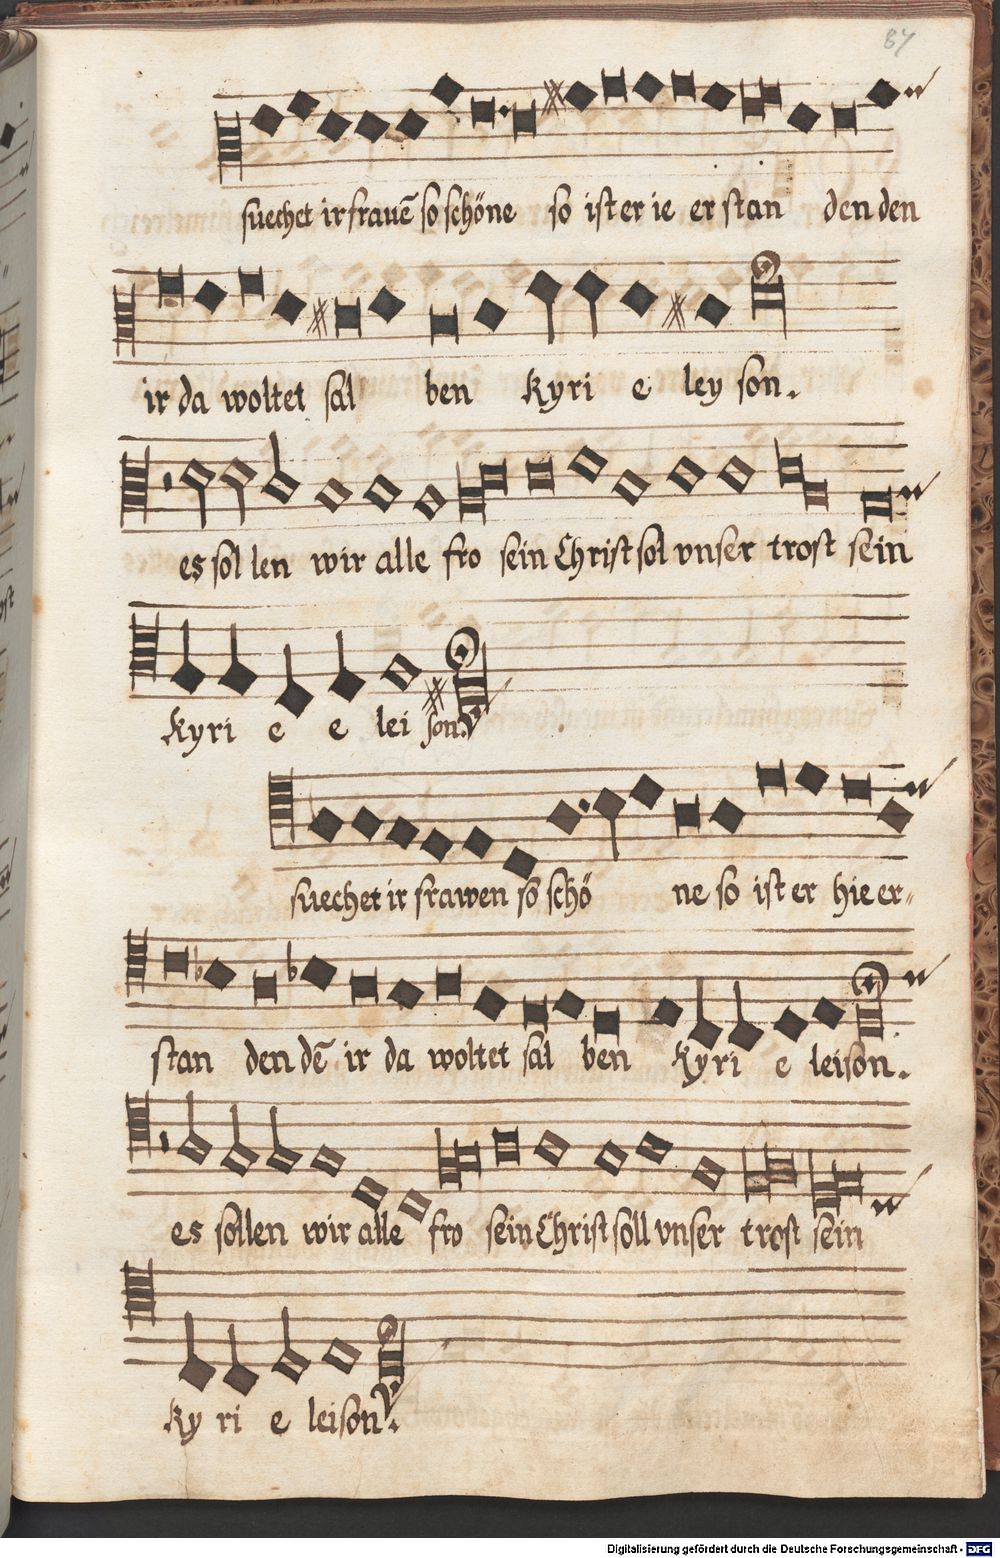 87
suechet ir frauē so schöne so ist er ie er stan den den
ir da woltet sal ben kyri e ley son.
es sol len wir alle fro sein Christ sol vnser trost sein
kyri e e lei son.
suechet ir frawen so schö ne so ist er hie er-
stan den dē ir da woltet sal ben kyri e leison.
es sollen wir alle fro sein Christ soll vnser trost sein
ky ri e leison.
Digitalisierung gefördert durch die Deutsche Forschungsgemeinschaft - DFG